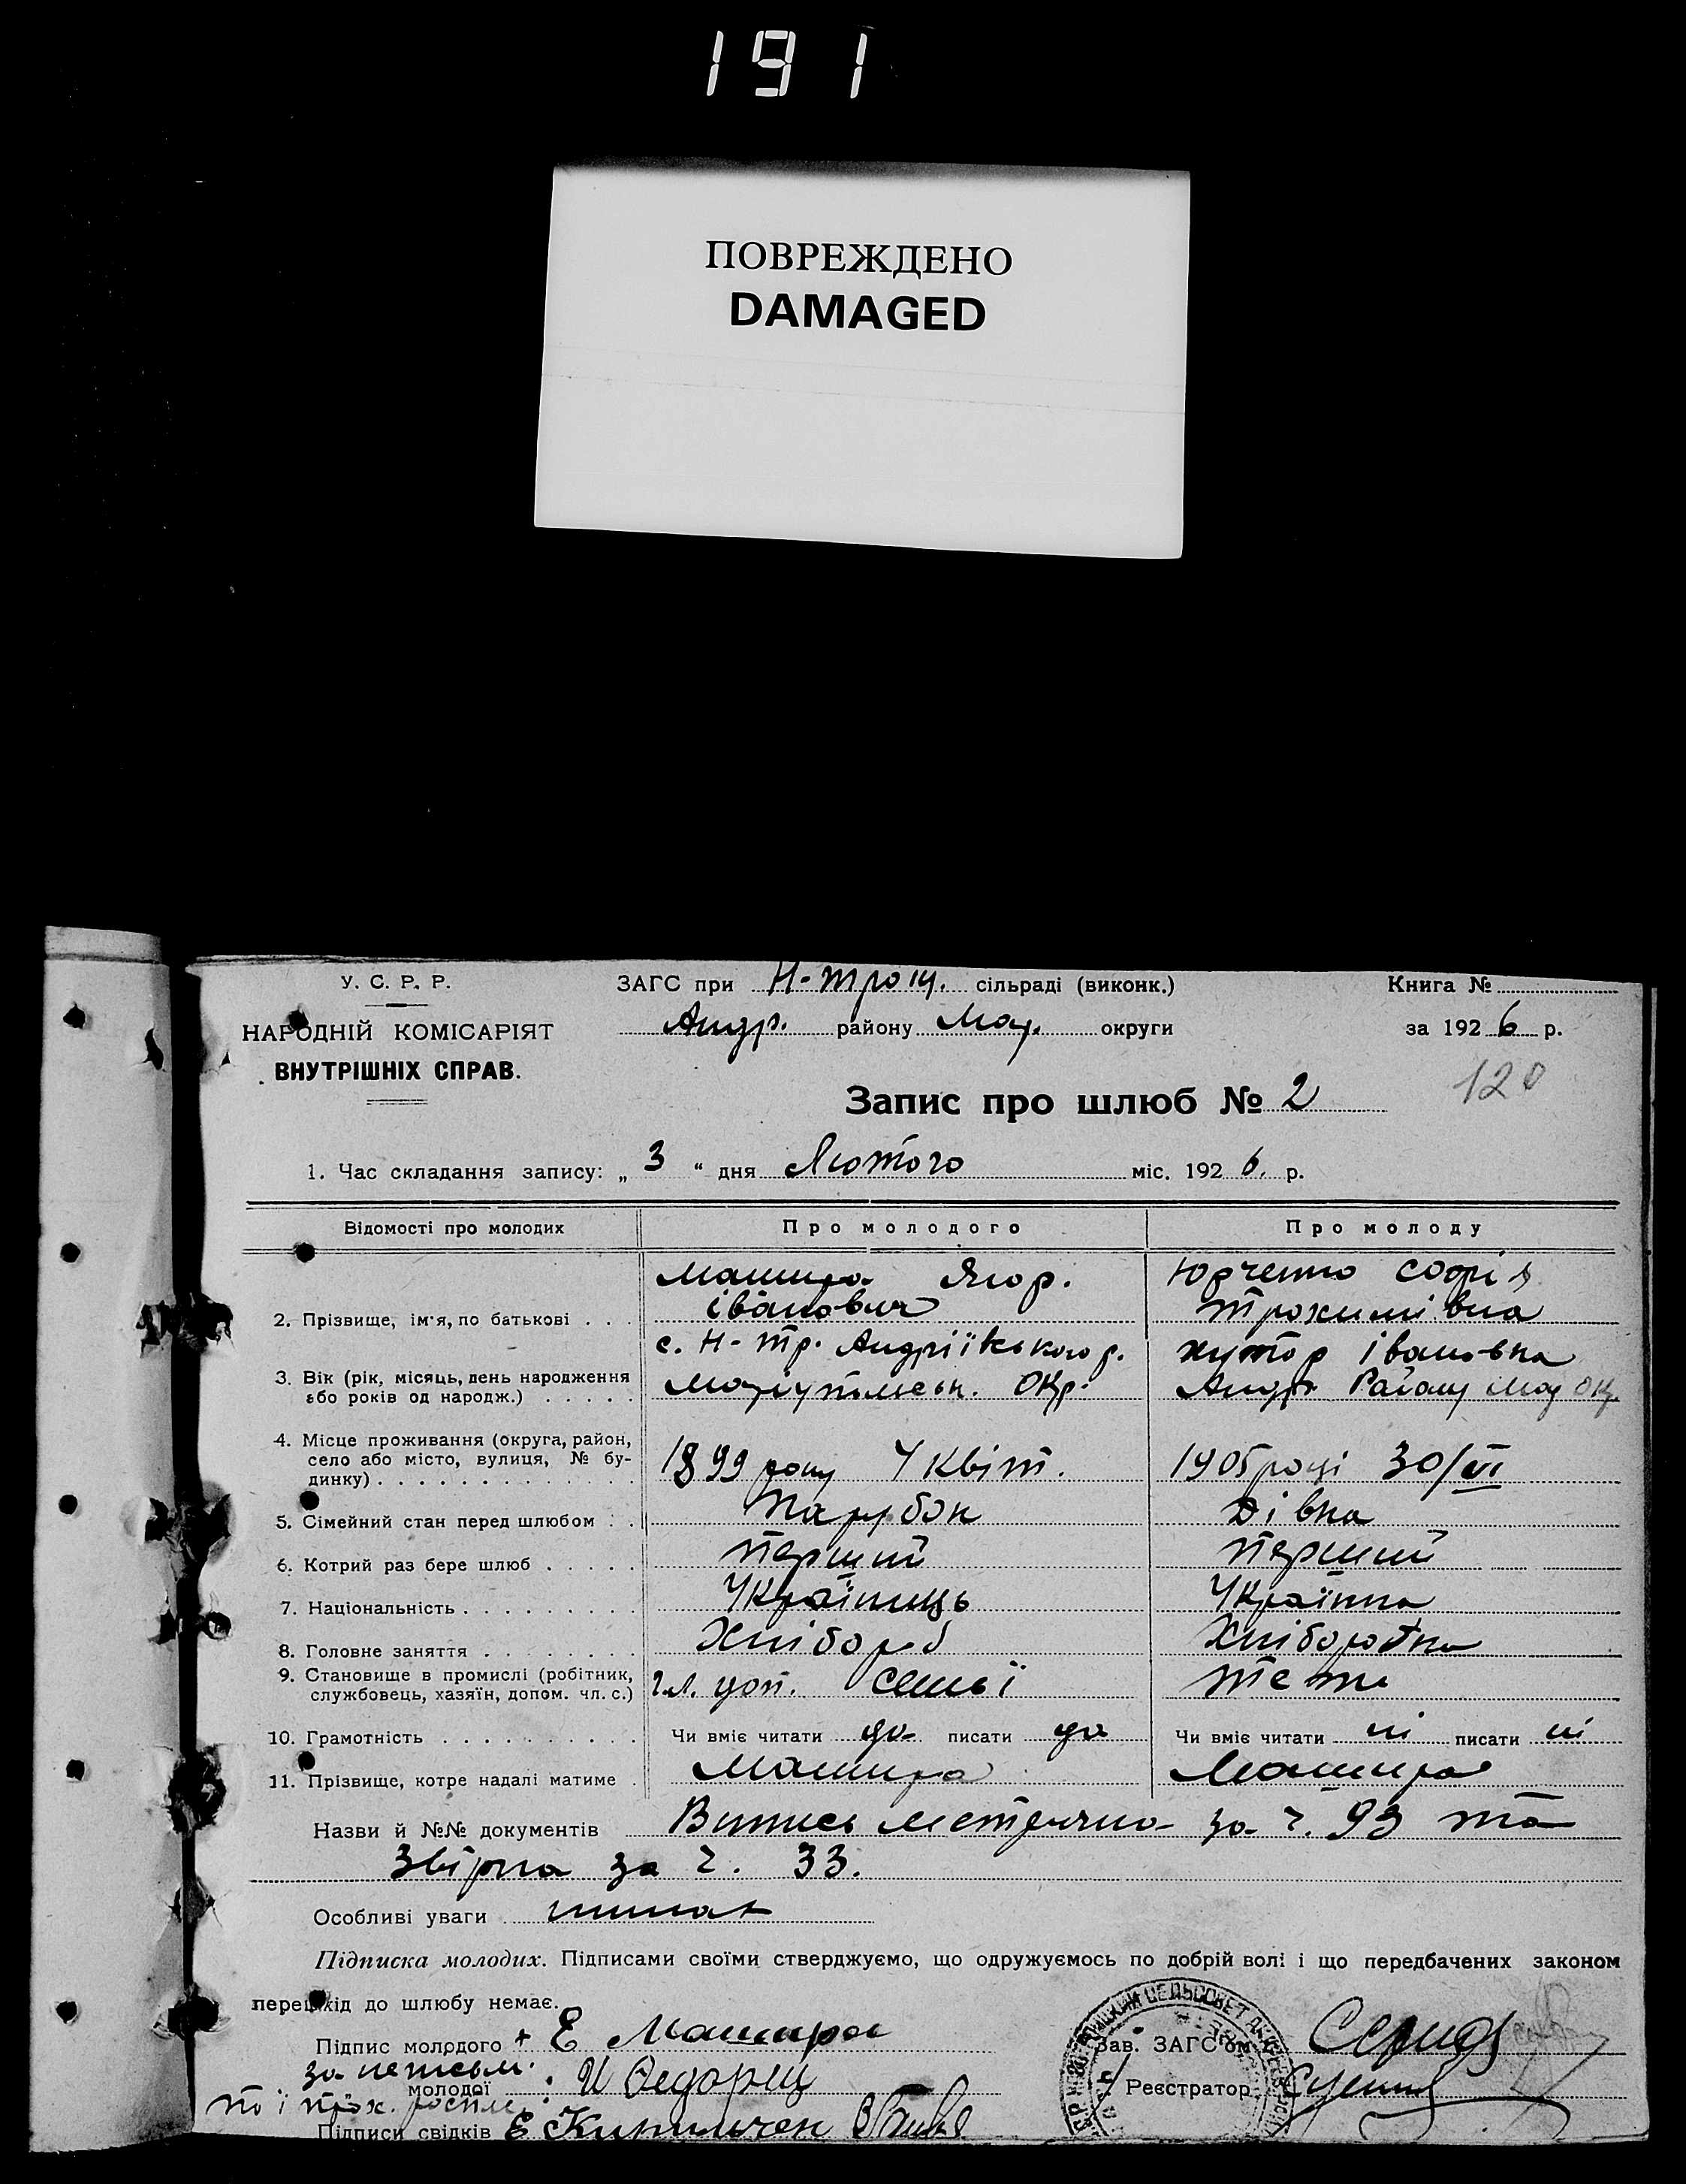 191
ПОВРЕЖДЕНО
DAMAGED
У. С. Р. Р.
НАРОДНІЙ КОМІСАРІЯТ
ВНУТРІШНІХ СПРАВ.
ЗАГС при Н-Троїц. сільраді (виконк.)
Андр. району Мар. округи
Книга №
за 1926 р.
120
Запис про шлюб № 2
1. Час складання запису: „ 3 “ дня Лютого міс. 1926. р.
Відомості про молодих Про молодого Про молоду
2. Прізвище, ім'я, по батькові . . . Машира Єгор. іванович Юрченко Софія Трохимівна
3. Вік (рік, місяць, день народження або років од народж.) . . . . . с. Н-Тр. Андріївського р. Маріупільськ. Окр. хутор івановка Андр. Району Мар Окр.
4. Місце проживання (округа, район, село або місто, вулиця, № будинку) . . . . . . . . . . 1899 року 4 квіт. 1905 році 30/VI
5. Сімейний стан перед шлюбом . . Парубок Дівка
6. Котрий раз бере шлюб . . . . . Перший Перший
7. Національність . . . . . . . . . Українець Українка
8. Головне заняття . . . . . . . . Хлібороб Хліборобка
9. Становище в промислі (робітник, службовець, хазяїн, допом. чл. с.) чл. доп. семьї теж
10. Грамотність . . . . . . . . . . Чи вміє читати да писати да Чи вміє читати ні писати ні
11. Прізвище, котре надалі матиме . Машира Машира
Назви й №№ документів Випись метрична за ч. 93 та
Звірка за ч. 33.
Особливі уваги
Підписка молодих. Підписами своїми стверджуємо, що одружуємось по добрій волі і що передбачених законом
перешкід до шлюбу немає.
Підпис молодого + Е Машира
за неписьм.
молодої И Федорец
по її прох. росписи
Підписи свідків Е Кирильчен
Зав. ЗАГС'ом
Реєстратор